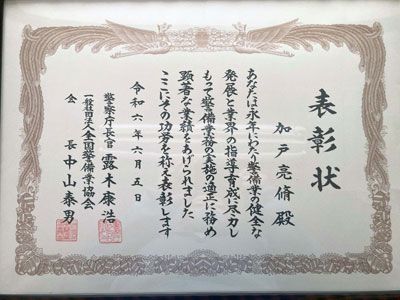 表彰状
加戸亮脩殿
あなたは永年にわたり警備業の健全な
発展と業界の指導育成に尽力し
もって警備業務の実施の適正に務め
顕著な業績をあげられました
ここにその功労を称え表彰します
令和六年六月五日
警察庁長官 露木康浩
一般社団法人全国警備業協会
会長 中山泰男